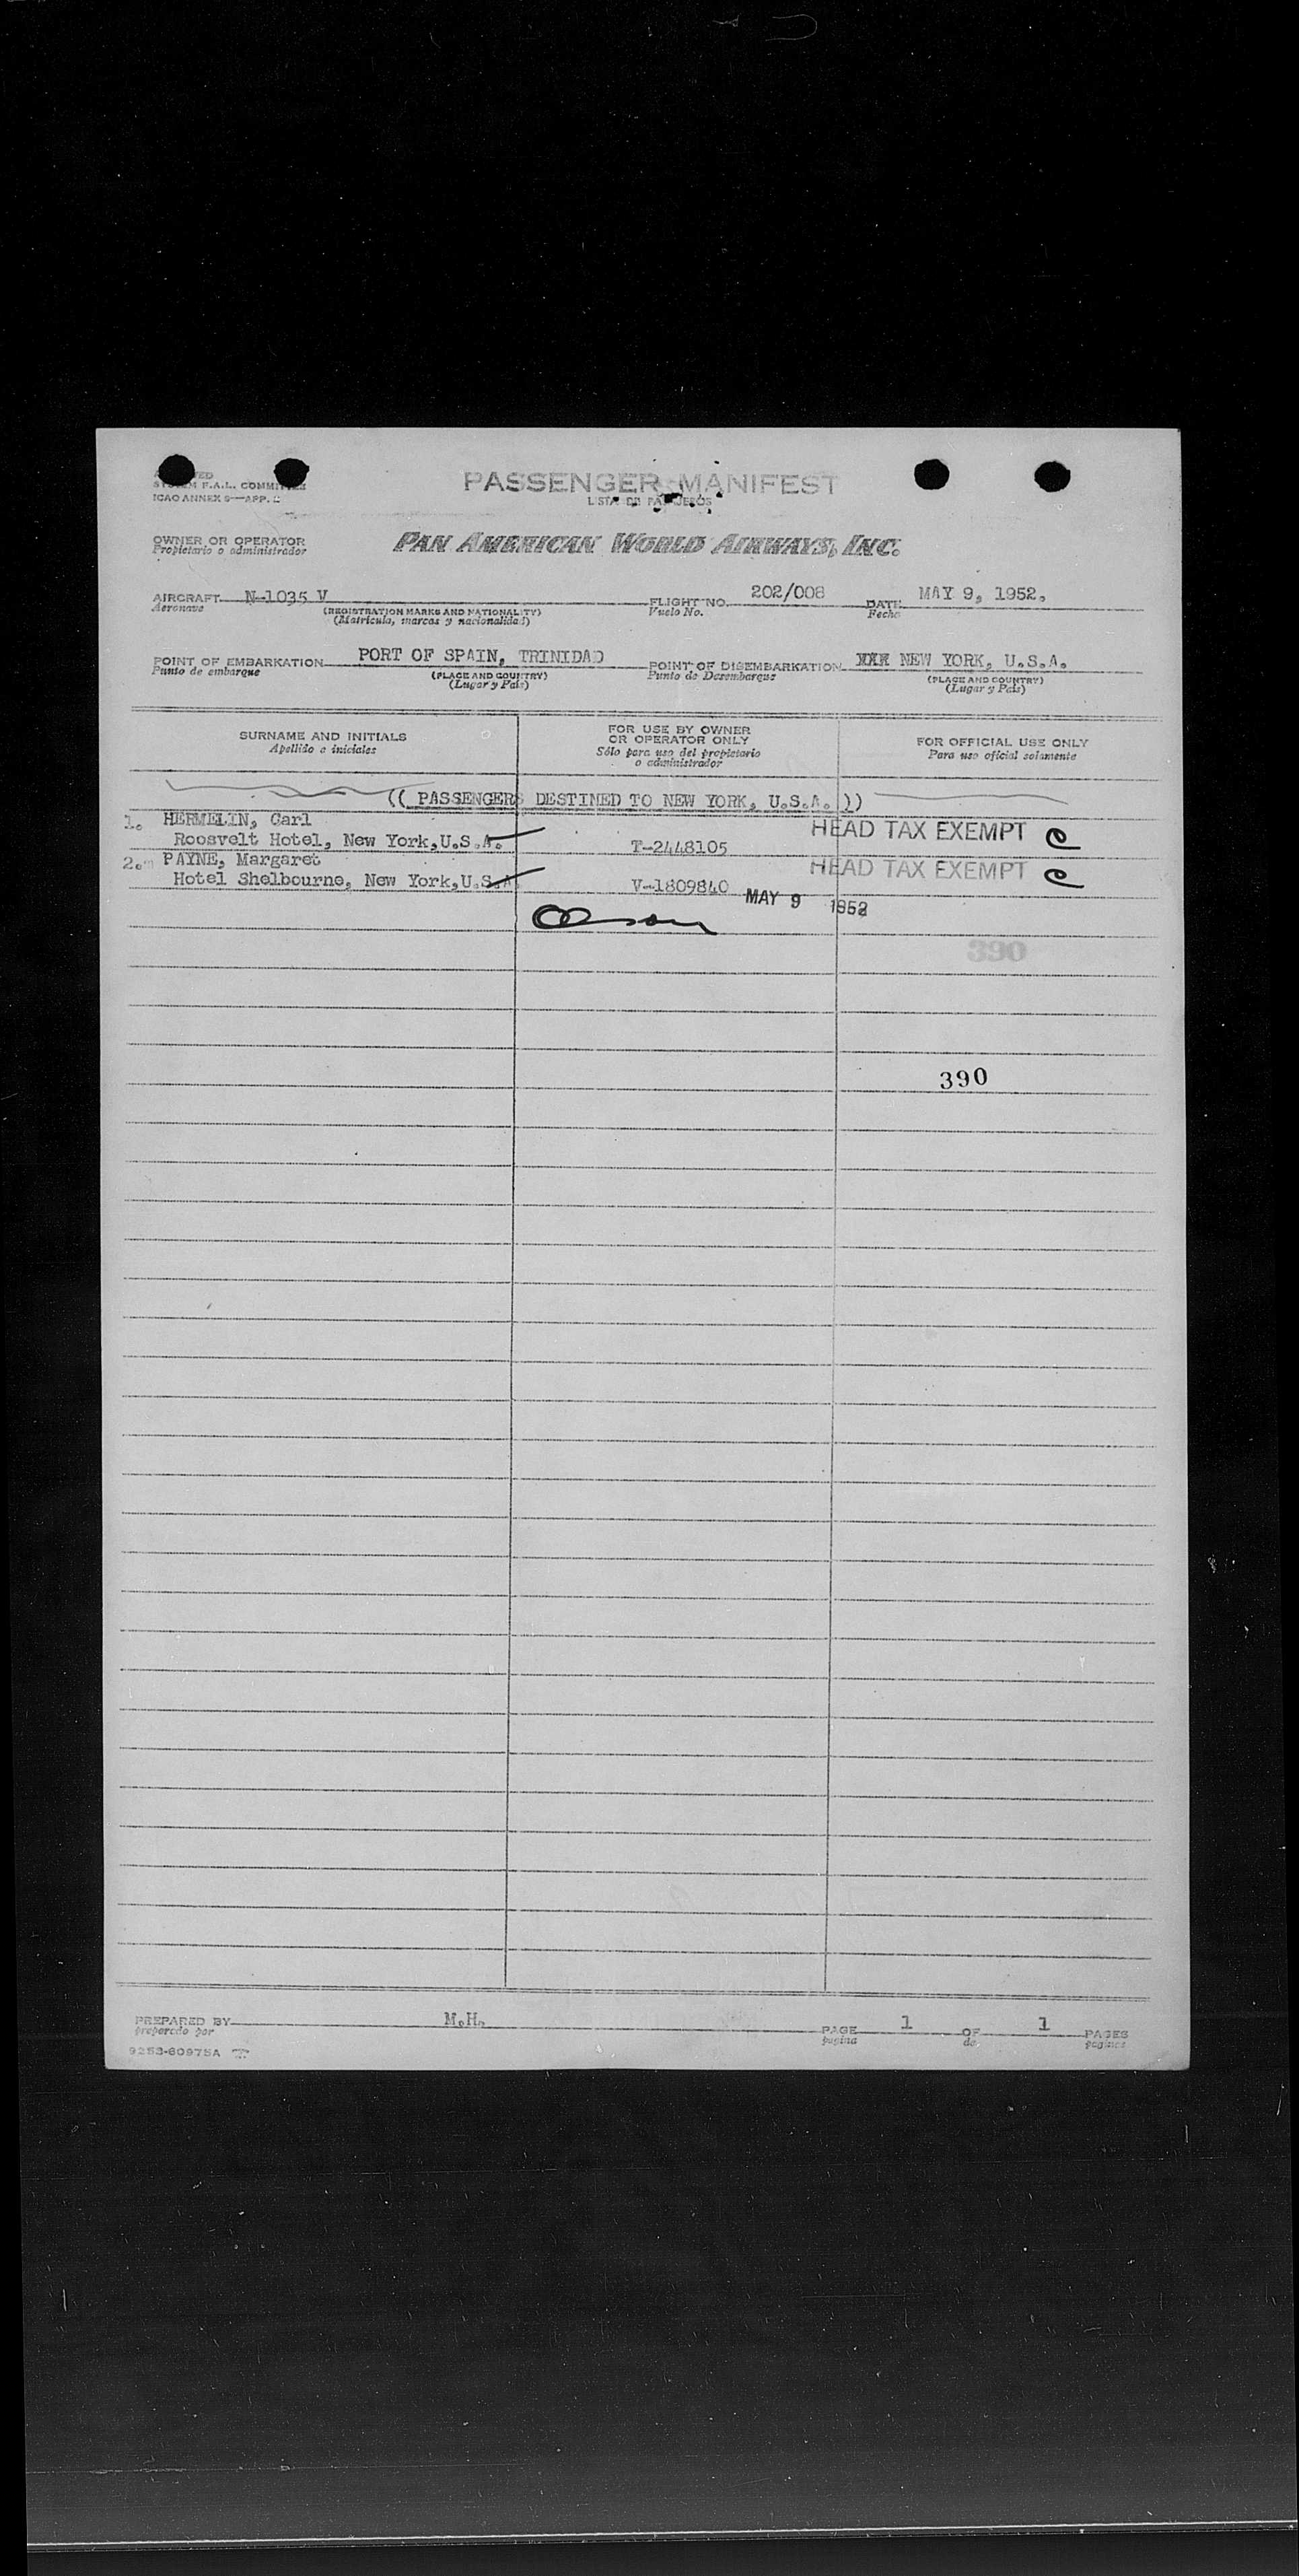 PASSENGER MANIFEST
OWNER OR OPERATOR
Propietario o administrador
PAN AMERICAN WORLD AIRWAYS, INC.
AIRCRAFT N-1035 V
Aeronave
(REGISTRATION MARKS AND NATIONALITY)
(Matrícula, marcas y nacionalidad)
FLIGHT NO. 202/008
Vuelo No.
DATE MAY 9, 1952.
Fecha
POINT OF EMBARKATION PORT OF SPAIN, TRINIDAD
Punto de embarque
(PLACE AND COUNTRY)
(Lugar y País)
POINT OF DISEMBARKATION XXX NEW YORK, U.S.A.
Punto de Desembarque
(PLACE AND COUNTRY)
(Lugar y País)
SURNAME AND INITIALS
Apellido e iniciales
FOR USE BY OWNER
OR OPERATOR ONLY
Sólo para uso del propietario
o administrador
FOR OFFICIAL USE ONLY
Para uso oficial solamente
(( PASSENGERS DESTINED TO NEW YORK, U.S.A. ))
1. HERMELIN, Carl
Roosvelt Hotel, New York,U.S.A. T-2448105 HEAD TAX EXEMPT C
2. PAYNE, Margaret
Hotel Shelbourne, New York,U.S.A. V-1809840 HEAD TAX EXEMPT C
MAY 9 1952
Olson
390
390
PREPARED BY M.H.
preparado por
PAGE 1 OF 1 PAGES
pagina de paginas
9253-60975A